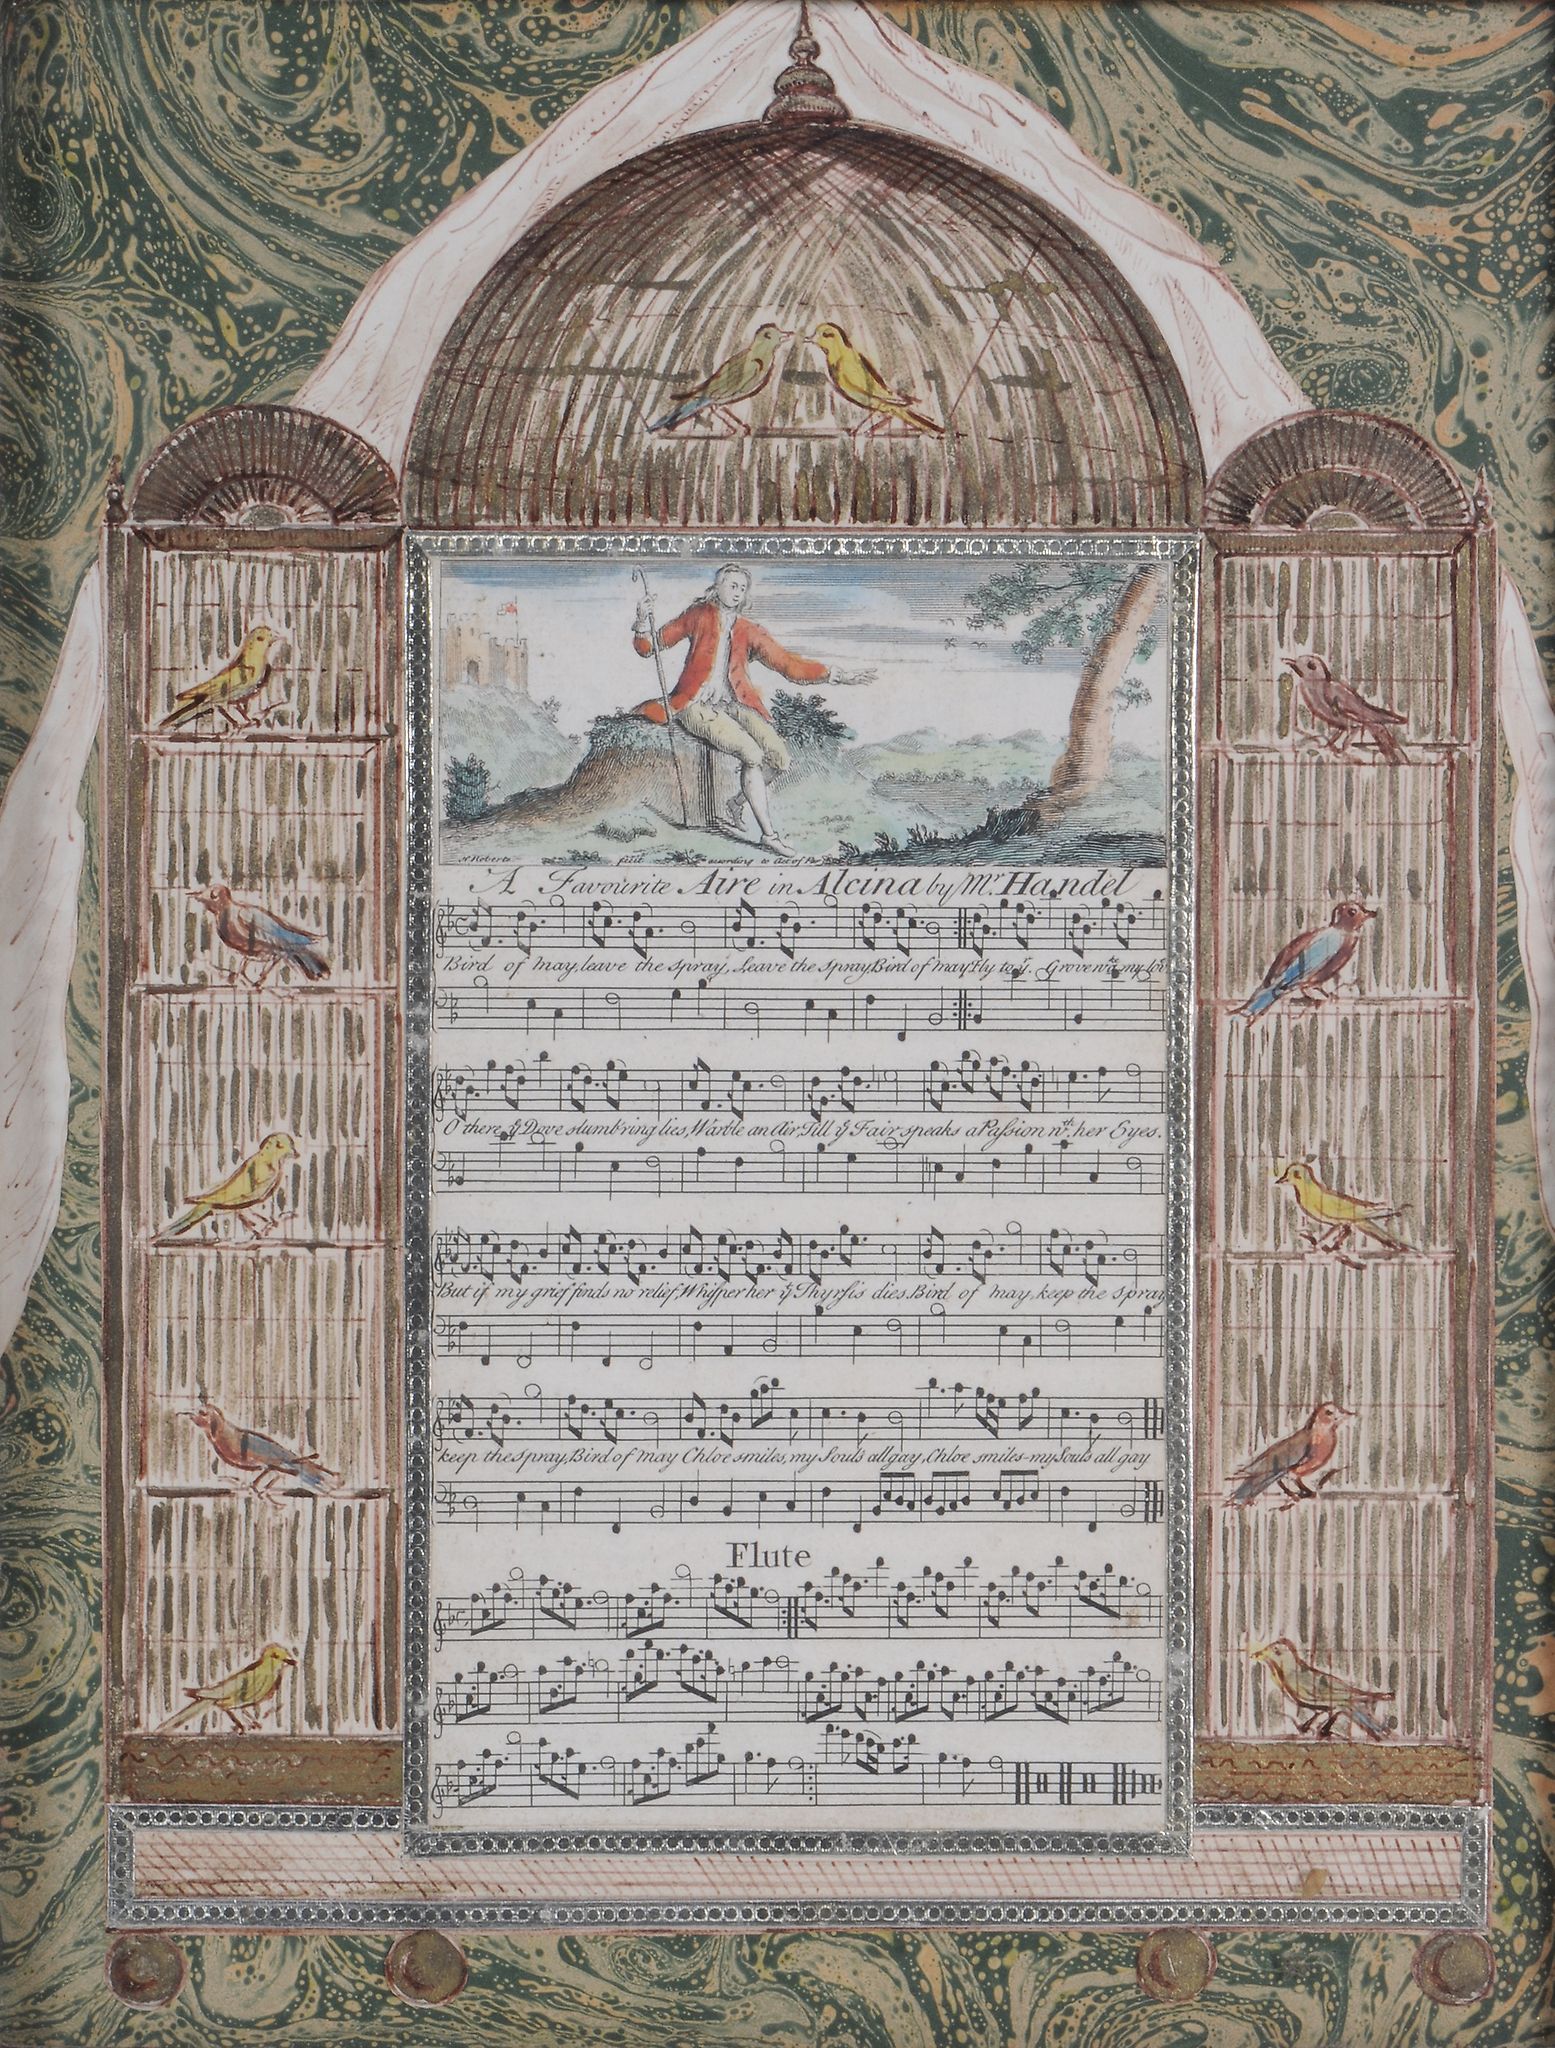 H Roberts fecit according to Act of Par
A Favourite Aire in Alcina by Mr. Handel
Bird of May, leave the spray, Leave the spray Bird of May Fly to ye. Grove wre. my lov
O there ye Dove slumb'ring lies, Warble an Air, Till ye Fair speaks a Passion wth. her Eyes.
But if my grief finds no relief, Whisper her yt Thyrsis dies. Bird of May, keep the Spray
keep the Spray, Bird of May Chloe smiles, my Soul's all gay, Chloe smiles-my Soul's all gay
Flute